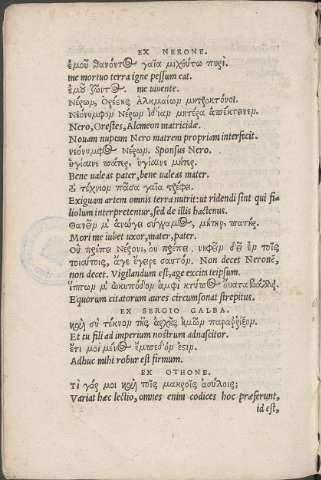 EX NERONE.
ἐμοῦ θανόντ⊕ γαῖα μιχθήτω πυρί.
me mortuo terra igne pessum eat.
ἐμοῦ ζῶντ⊕. me viuente.
Νέρων, Ορέςης, Αλκμαίων μητροκτόνοι.
Νεόνυμφον Νέρων ἰδίαν μητέρα ἀπέκτεινεν.
Nero, Orestes, Alcmeon matricidæ.
Nouam nupem Nero matrem propriam interfecit.
νεόνυμφ⊕ Νέρων. Sponsus Nero.
ὑγίαινε πάτερ, ὑγίαινε μῆτερ.
Bene ualeas pater, bene ualeas mater.
τέχνιον πᾶσα γαῖα τρέφει.
Exiguam artem omnis terra nutrit: ut ridendi sint qui fi-
liolum interpretentur, sed de illis hactenus.
Θανεῖν μ' ἄνωγε σύγγαμ⊕, μήτηρ, πατήρ.
Mori me iubet uxor, mater, pater.
Οὐ πρέπει Νέρωνι, οὐ πρέπει, νήφειν δεῖ ἐν τοῖς
τοιούτοις, ἄγε ἔγειρε σαυτόν. Non decet Neronē,
non decet. Vigilandum est, age excita teipsum.
ἵππων μ' ὠκυπόδων ἀμφὶ κτύπ⊕ οὔατα βάλλει.
Equorum citatorum aures circumsonat strepitus.
EX SERGIO GALBA.
καὶ σὺ τέκνον τῆς ἀρχῆς ἡμῶν παρατρώξῃ.
Et tu fili ad imperium nostrum adnascitor.
ἔτι μοι μέν⊕ ἔμπεδόν ἐςιν.
Adhuc mihi robur est firmum.
EX OTHONE.
Τί γάρ μοι καὶ τοῖς μακροῖς αὐλοῖς;
Variat hæc lectio, omnes enim codices hoc præferunt,
id est,